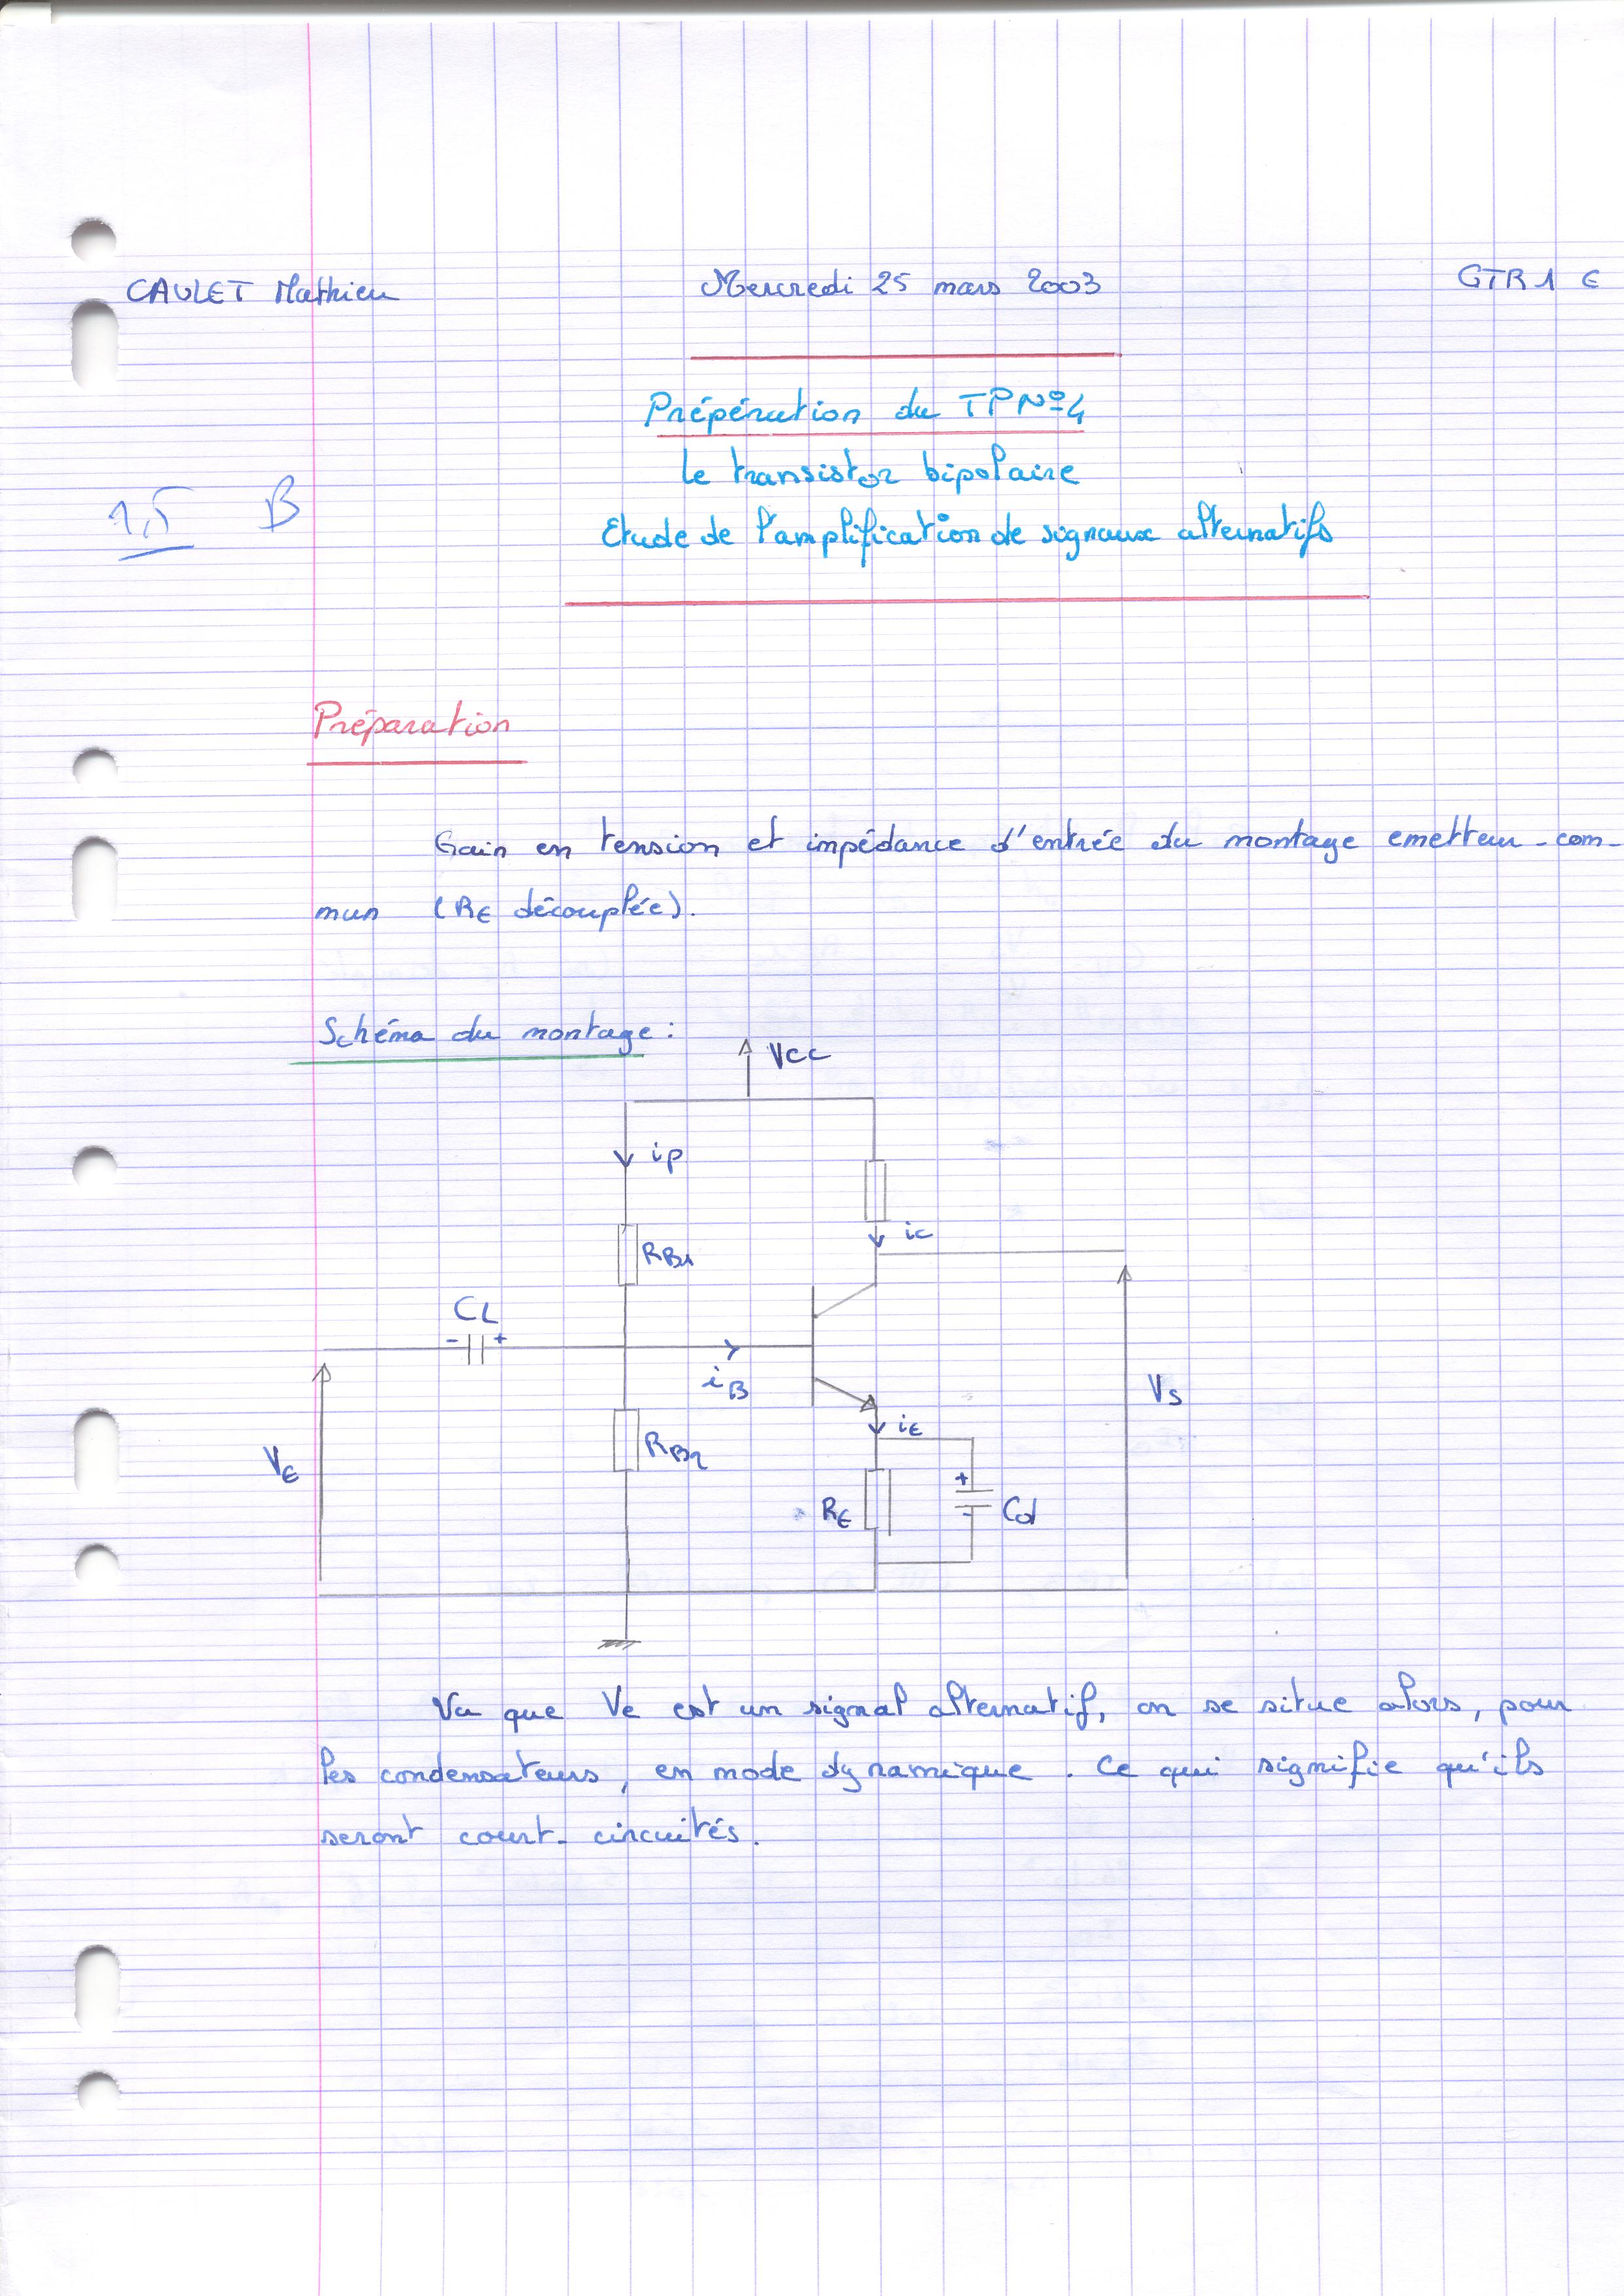 CAULET Mathieu Mercredi 25 mars 2003 GTR1 E
Prépération du TP N°4
le transistor bipolaire
1,5 B
Etude de l'amplification de signaux alternatifs
Préparation
Gain en tension et impédance d'entrée du montage emetteur-com-
mun (RE découplée).
Schéma du montage :
VCC
ip
ic
RB1
CL
- +
iB
VS
iE
RB2
VE
+
RE
Cd
-
Vu que Ve est un signal alternatif, on se situe alors, pour
les condensateurs, en mode dynamique. Ce qui signifie qu'ils
seront court-circuités.